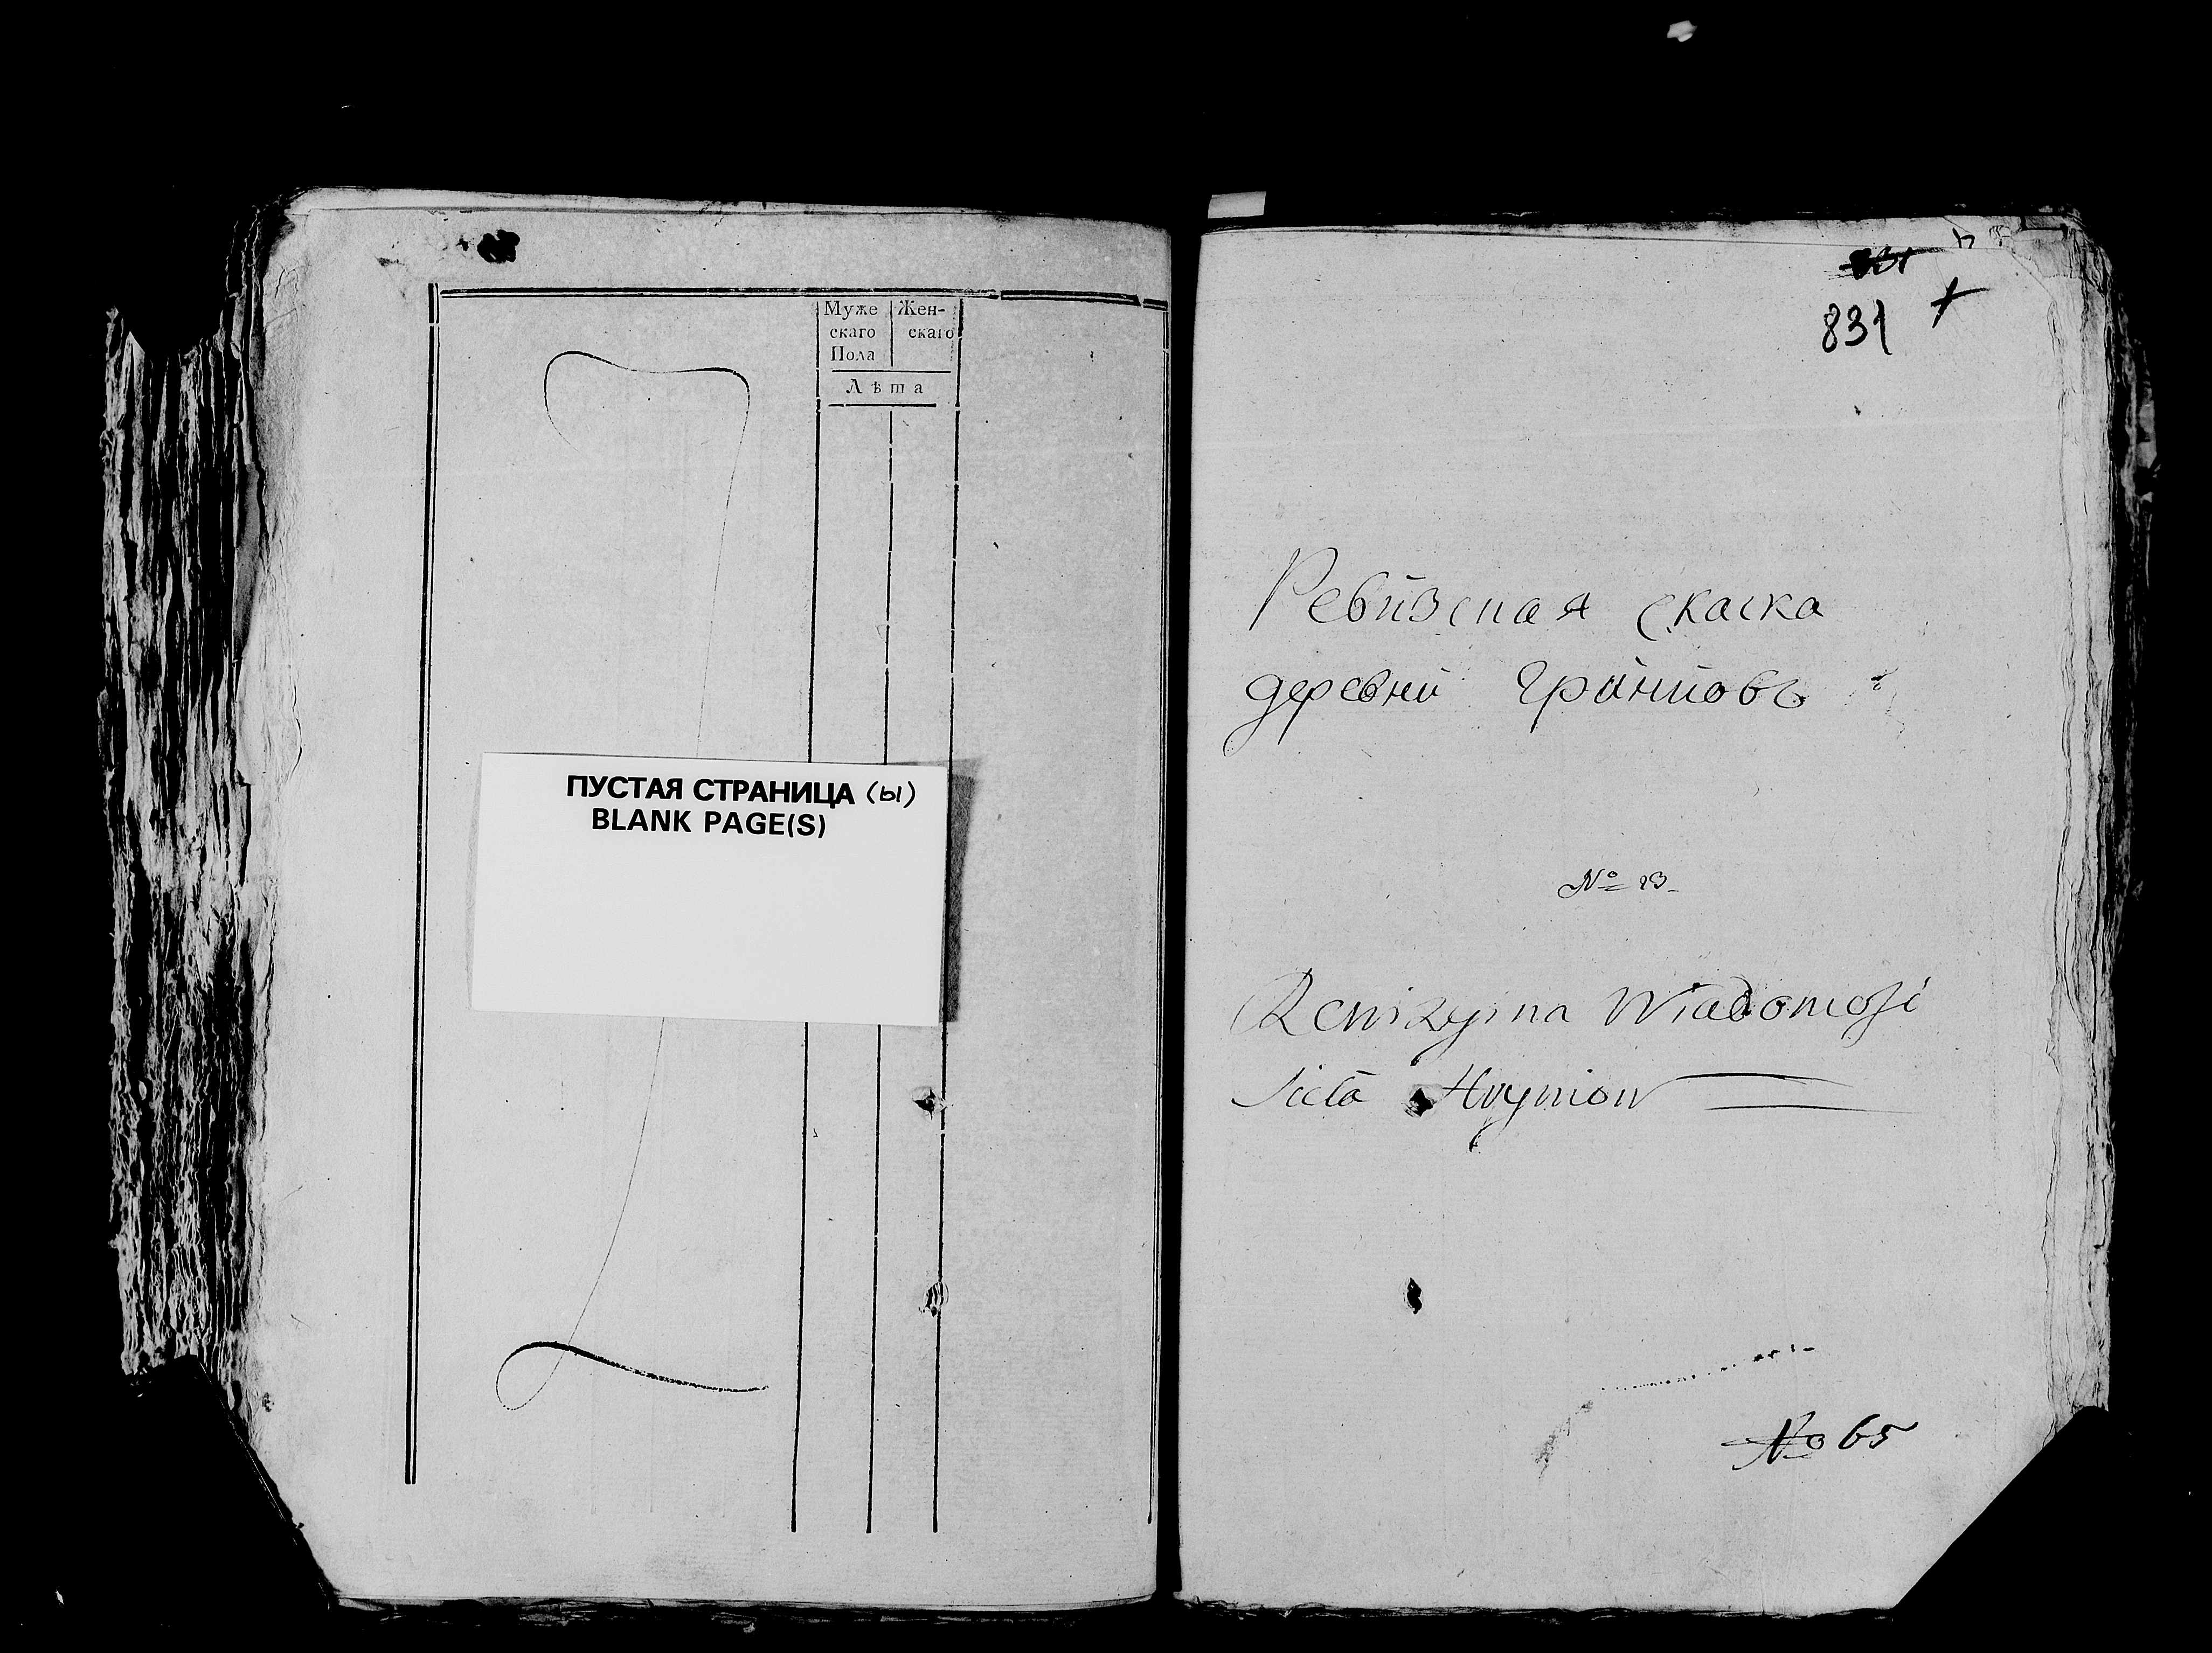 Муже
скаго
Пола
Жен-
скаго
Лѣта
ПУСТАЯ СТРАНИЦА (ы)
BLANK PAGE(S)
831
831
Ревизская скаска
деревни Гриниовъ
№ 23
Rewizyina Wiadomość
Sioła Hryniow
№ 65